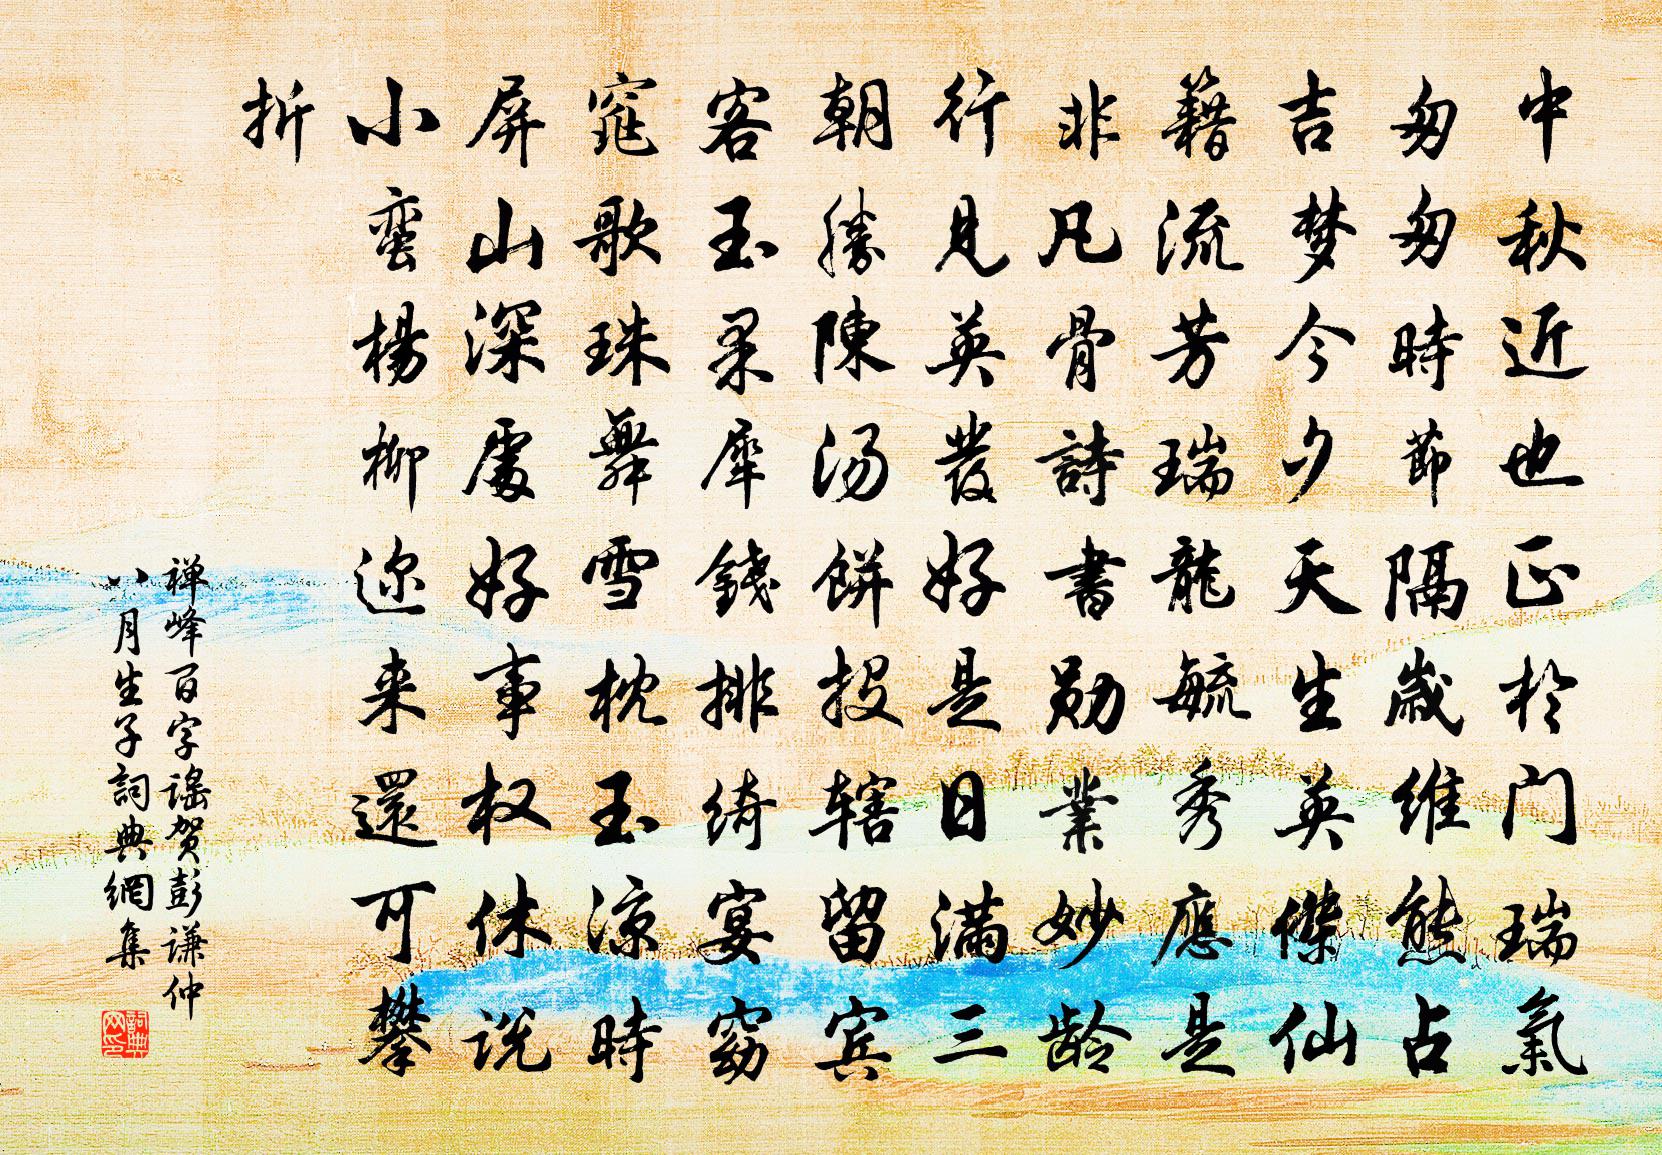 中秋近也正於门瑞氣
匆匆時節隔歲維熊占
吉梦今夕天生英傑仙
籍流芳瑞龍毓秀應是
非凡骨詩書勋業妙龄
行見英發好是日满三
朝勝陳汤餅投辖留宾
客玉果犀錢排绮宴窈
窕歌珠舞雪枕玉凉時
屏山深處好事权休说
小蛮楊柳迩来還可攀
折
禅峰百字謠贺彭谦仲
八月生子詞典網集
詞典网印